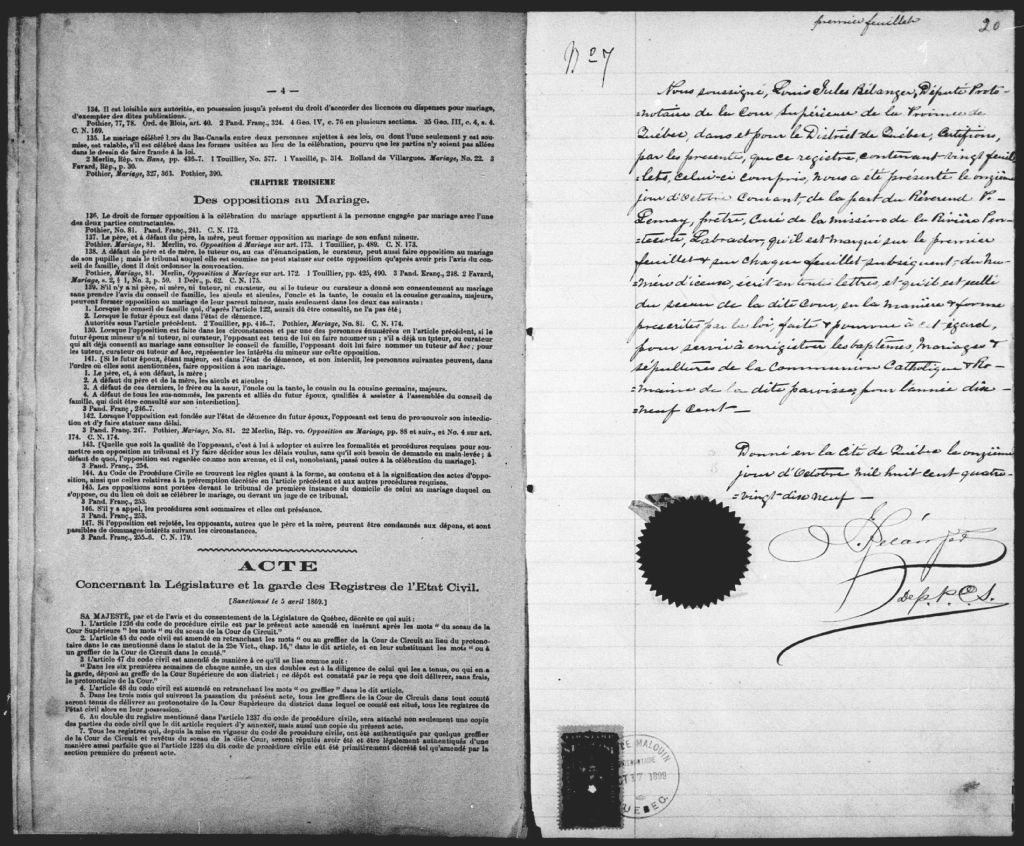 — 4 —
134. Il est loisible aux autorités, en possession jusqu'à présent du droit d'accorder des licences ou dispenses pour mariage,
d'exempter des dites publications.
Pothier, 77, 78. Ord. de Blois, art. 40. 2 Pand. Franç., 324. 4 Geo. IV, c. 76 en plusieurs sections. 35 Geo. III, c. 4, s. 4.
C. N. 169.
135. Le mariage célébré hors du Bas-Canada entre deux personnes sujettes à ses lois, ou dont l'une seulement y est sou-
mise, est valable, s'il est célébré dans les formes usitées au lieu de la célébration, pourvu que les parties n'y soient pas allées
dans le dessin de faire fraude à la loi.
2 Merlin, Rép. vo. Bans, pp. 436-7. 1 Touillier, No. 577. 1 Vazeille, p. 314. Rolland de Villargues, Mariage, No. 22. 3
Favard, Rép., p. 30.
Pothier, Mariage, 327, 363. Pothier, 390.
CHAPITRE TROISIEME
Des oppositions au Mariage.
136. Le droit de former opposition à la célébration du mariage appartient à la personne engagée par mariage avec l'une
des deux parties contractantes.
Pothier, No. 81. Pand. Franç., 241. C. N. 172.
137. Le père, et à défaut du père, la mère, peut former opposition au mariage de son enfant mineur.
Pothier, Mariage, 81. Merlin, vo. Opposition à Mariage sur art. 173. 1 Touillier, p. 489. C. N. 173.
138. A défaut de père et de mère, le tuteur ou, au cas d'émancipation, le curateur, peut aussi faire opposition au mariage
de son pupille ; mais le tribunal auquel elle est soumise ne peut statuer sur cette opposition qu'après avoir pris l'avis du con-
seil de famille, dont il doit ordonner la convocation.
Pothier, Mariage, 81. Merlin, Opposition à Mariage sur art. 172. 1 Touillier, pp. 425, 490. 3 Pand. Franç., 248. 2 Favard,
Mariage, s. 2, § 1, No. 3, p. 59. 1 Delv., p. 62. C. N. 175.
139. S'il n'y a ni père, ni mère, ni tuteur, ni curateur, ou si le tuteur ou curateur a donné son consentement au mariage
sans prendre l'avis du conseil de famille, les aïeuls et aïeules, l'oncle et la tante, le cousin et la cousine germains, majeurs,
peuvent former opposition au mariage de leur parent mineur, mais seulement dans les deux cas suivants :
1. Lorsque le conseil de famille qui, d'après l'article 122, aurait dû être consulté, ne l'a pas été ;
2. Lorsque le futur époux est dans l'état de démence.
Autorités sous l'article précédent. 2 Touillier, pp. 446-7. Pothier, Mariage, No. 81. C. N. 174.
130. Lorsque l'opposition est faite dans les circonstances et par une des personnes énumérées en l'article précédent, si le
futur époux mineur n'a ni tuteur, ni curateur, l'opposant est tenu de lui en faire nommer un ; s'il a déjà un tuteur, ou curateur
qui ait déjà consenti au mariage sans consulter le conseil de famille, l'opposant doit lui faire nommer un tuteur ad hoc ; pour
les tuteur, curateur ou tuteur ad hoc, représenter les intérêts du mineur sur cette opposition.
141. [Si le futur époux, étant majeur, est dans l'état de démence, et non interdit, les personnes suivantes peuvent, dans
l'ordre où elles sont mentionnées, faire opposition à son mariage.
1. Le père, et, à son défaut, la mère ;
2. A défaut du père et de la mère, les aïeuls et aïeules ;
3. A défaut de ces derniers, le frère ou la sœur, l'oncle ou la tante, le cousin ou la cousine germains, majeurs.
4. A défaut de tous les sus-nommés, les parents et alliés du futur époux, qualifiés à assister à l'assemblée du conseil de
famille, qui doit être consulté sur son interdiction].
3 Pand. Franç., 246-7.
142. Lorsque l'opposition est fondée sur l'état de démence du futur époux, l'opposant est tenu de promouvoir son interdic-
tion et d'y faire statuer sans délai.
3 Pand. Franç. 247. Pothier, Mariage, No. 81. 22 Merlin, Rép. vo. Opposition au Mariage, pp. 88 et suiv., et No. 4 sur art.
174. C. N. 174.
143. [Quelle que soit la qualité de l'opposant, c'est à lui à adopter et suivre les formalités et procédures requises pour sou-
mettre son opposition au tribunal et l'y faire décider sous les délais voulus, sans qu'il soit besoin de demande en main-levée ; à
défaut de quoi, l'opposition est regardée comme non avenue, et il est, nonobstant, passé outre à la célébration du mariage].
3 Pand. Franç., 254.
144. Au Code de Procédure Civile se trouvent les règles quant à la forme, au contenu et à la signification des actes d'oppo-
sition, ainsi que celles relatives à la péremption décrétée en l'article précédent et aux autres procédures requises.
145. Les oppositions sont portées devant le tribunal de première instance du domicile de celui au mariage duquel on
s'oppose, ou du lieu où doit se célébrer le mariage, ou devant un juge de ce tribunal.
3 Pand. Franç., 253.
146. S'il y a appel, les procédures sont sommaires et elles ont préséance.
3 Pand. Franç., 253.
147. Si l'opposition est rejetée, les opposants, autres que le père et la mère, peuvent être condamnés aux dépens, et sont
passibles de dommages-intérêts suivant les circonstances.
3 Pand. Franç., 255-6. C. N. 179.
ACTE
Concernant la Législature et la garde des Registres de l'Etat Civil.
[Sanctionné le 5 avril 1869.]
SA MAJESTÉ, par et de l'avis et du consentement de la Législature de Québec, décrète ce qui suit :
1. L'article 1236 du code de procédure civile est par le présent acte amendé en insérant après les mots " du sceau de la
Cour Supérieure " les mots " ou du sceau de la Cour de Circuit."
2. L'article 45 du code civil est amendé en retranchant les mots " ou au greffier de la Cour de Circuit au lieu du protono-
taire dans le cas mentionné dans le statut de la 25e Vict., chap. 16," dans le dit article, et en leur substituant les mots " ou à
un greffier de la Cour de Circuit dans le comté."
3 L'article 47 du code civil est amendé de manière à ce qu'il se lise comme suit :
" Dans les six premières semaines de chaque année, un des doubles est à la diligence de celui qui les a tenus, ou qui en a
la garde, déposé au greffe de la Cour Supérieure de son district ; ce dépôt est constaté par le reçu que doit délivrer, sans frais,
le protonotaire de la Cour."
4. L'article 48 du code civil est amendé en retranchant les mots " ou greffier " dans le dit article.
5. Dans les trois mois qui suivront la passation du présent acte, tous les greffiers de la Cour de Circuit dans tout comté
seront tenus de délivrer au protonotaire de la Cour Supérieure du district dans lequel ce comté est situé, tous les registres de
l'état civil alors en leur possession.
6. Au double du registre mentionné dans l'article 1237 du code de procédure civile, sera attaché non seulement une copie
des parties du code civil que le dit article requiert d'y annexer, mais aussi une copie du présent acte.
7. Tous les registres qui, depuis la mise en vigueur du code de procédure civile, ont été authentiqués par quelque greffier
de la Cour de Circuit et revêtus du sceau de la dite Cour, seront réputés avoir été et être légalement authentiqués d'une
manière aussi parfaite que si l'article 1236 du dit code de procédure civile eût été primitivement décrété tel qu'amendé par la
section première du présent acte.
premier feuillet
20
No 7
Nous soussigné, Louis Jules Bélanger, Député Proto-
=notaire de la Cour Supérieure de la Province de
Québec, dans et pour le District de Québec, Certifions,
par les présentes, que ce registre, contenant vingt feuil
=lets, celui-ci compris, nous a été présenté le onzième
jour d'Octobre Courant, de la part du Révérend P.
Lemay, prêtre, Curé de la mission de la Rivière Pen-
tecôte, Labrador, qu'il est marqué sur le premier
feuillet & sur chaque feuillet subséquent, du nu-
=méro d'icelui, écrit en toutes lettres, et qu'il est scellé
du sceau de la dite Cour, en la manière & forme
prescrites par la loi, faite & pourvue à cet égard,
pour servir à enregistrer les baptêmes, Mariages &
sépultures de la Communion Catholique & Ro-
=maine de la dite paroisse, pour l'année dix
=neuf Cent —
Donné en la Cité de Québec le onzième
jour d'Octobre Mil huit cent quatre-
=vingt-dix neuf —
L. J. Bélanger
Dep. P. C. S.
MALOUIN
OCT 17 1899
QUEBEC